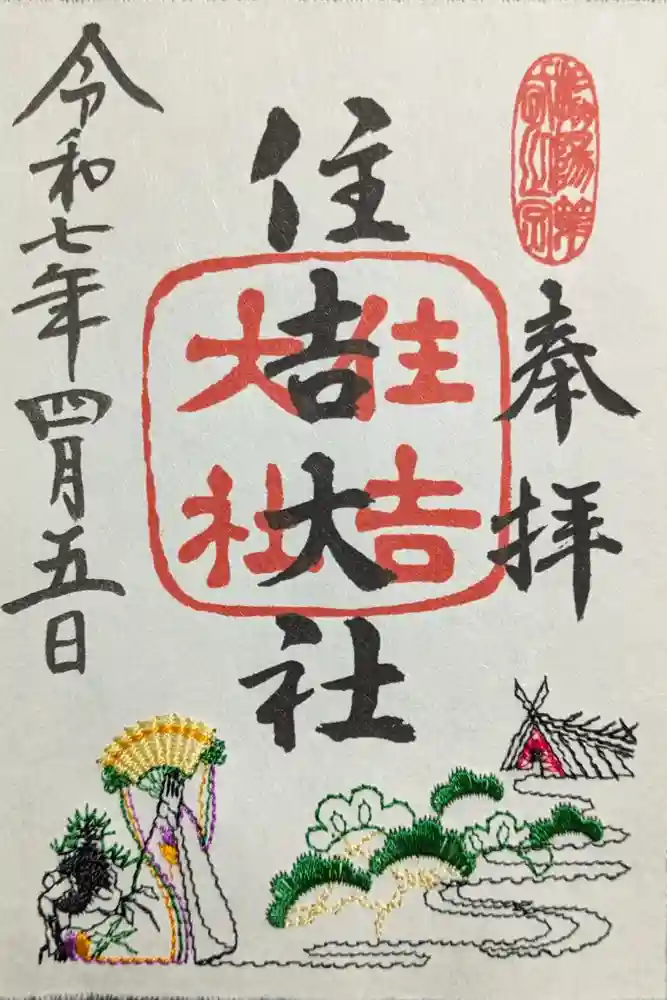 奉拝
住吉大社
住吉
大社
令和七年四月五日